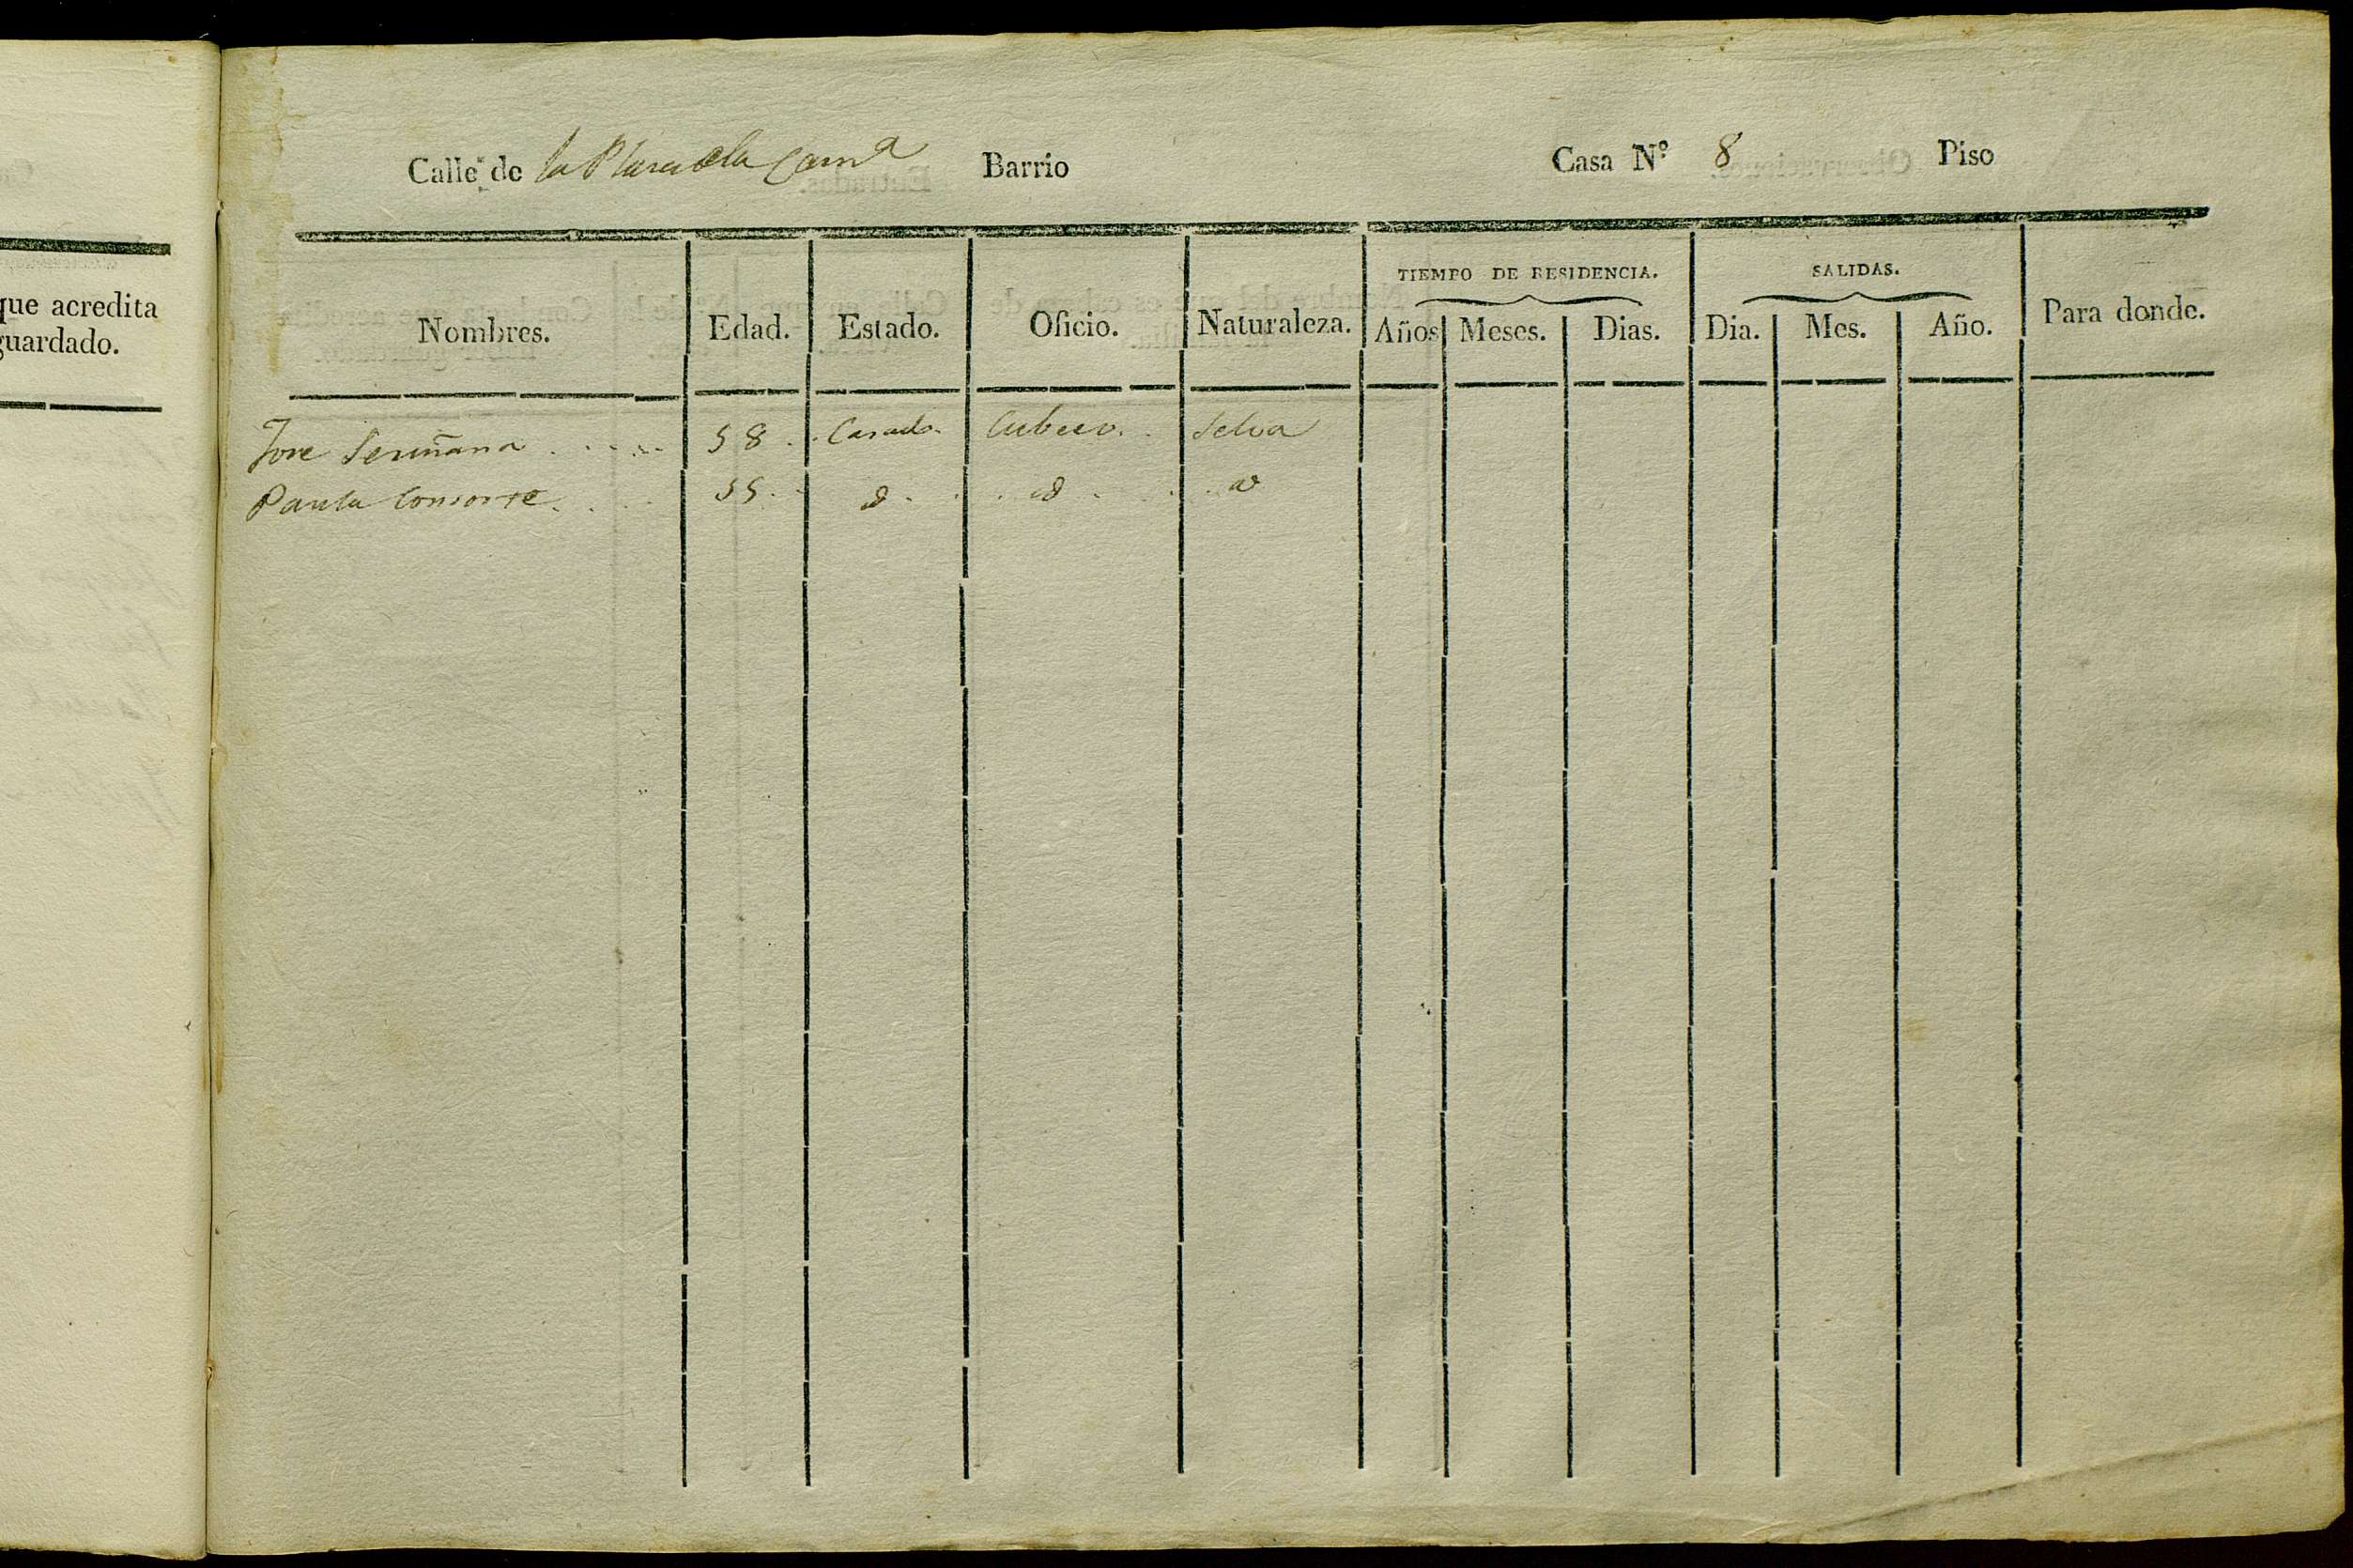 que acredita
guardado.
Calle de la Plasa de la Carn Barrio Casa Nº 8 Piso
TIEMPO DE RESIDENCIA. SALIDAS.
Nombres. Edad. Estado. Oficio. Naturaleza. Años Meses. Dias. Dia. Mes. Año. Para donde.
Jose Seriñana 58 Casado Cubero Selva
Paula Consorte 55 d d d